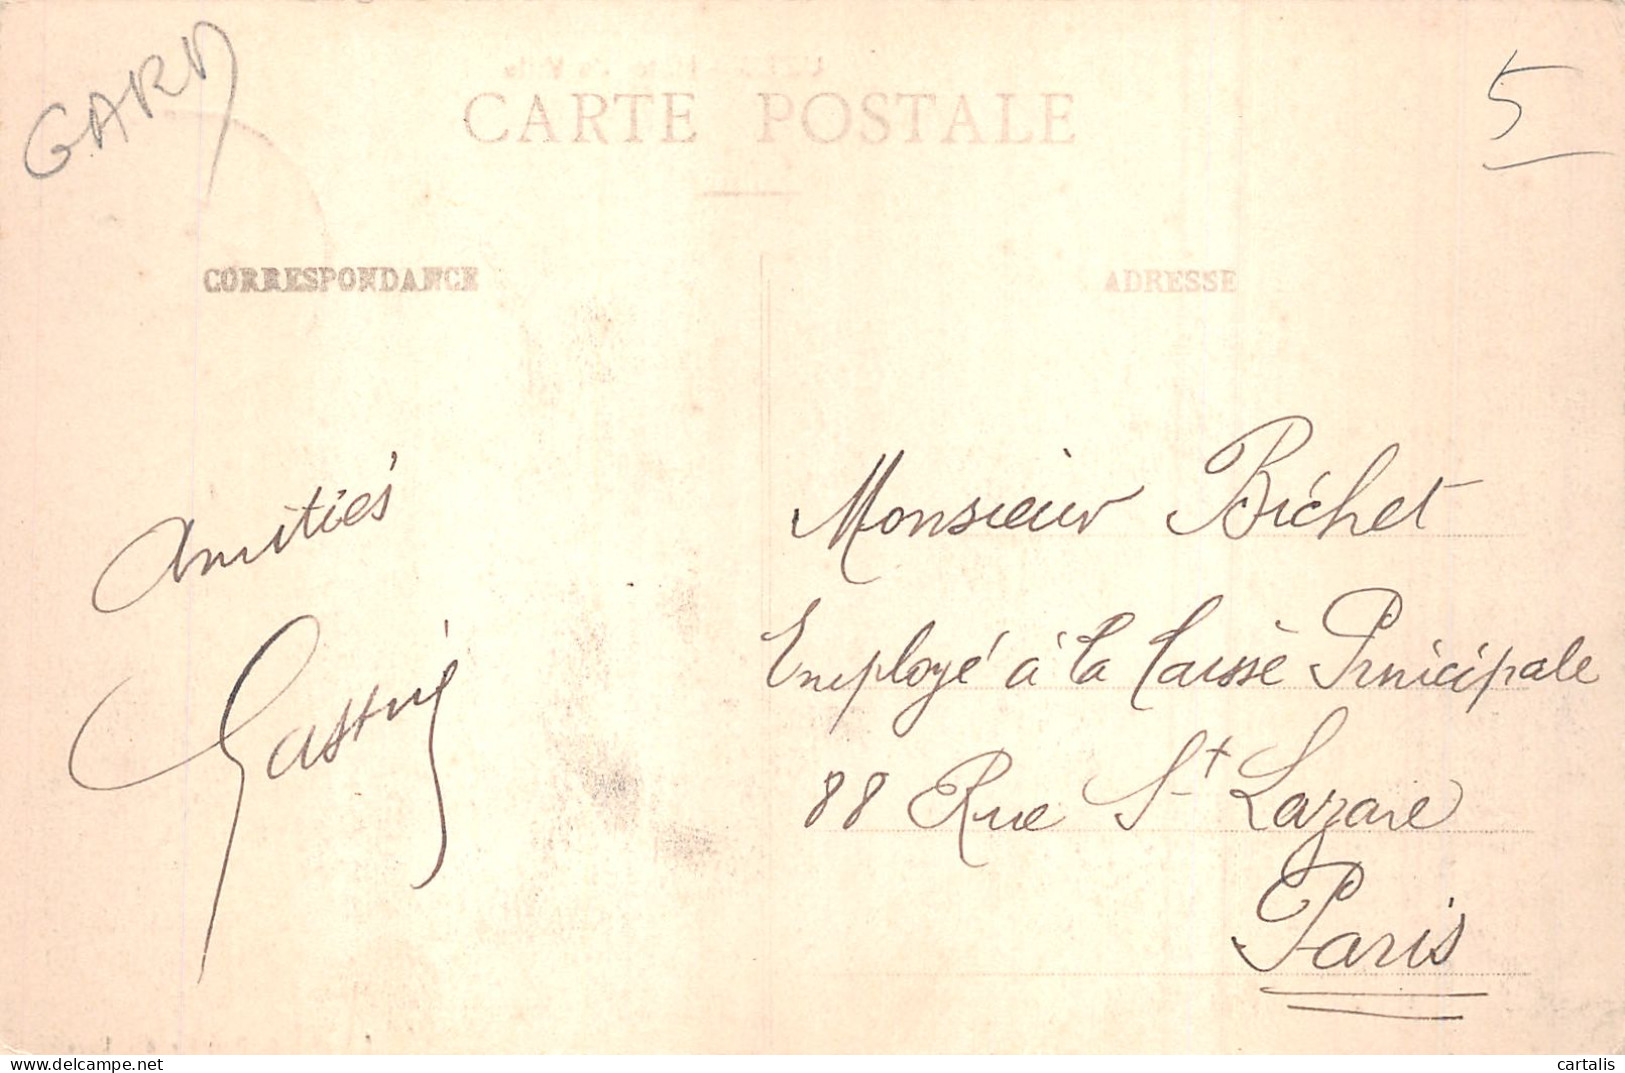 GARD
5
CARTE POSTALE
CORRESPONDANCE
ADRESSE
Amitiés
Monsieur Bichet
Employé à la Caisse Principale
88 Rue St Lazare
Paris
cartalis